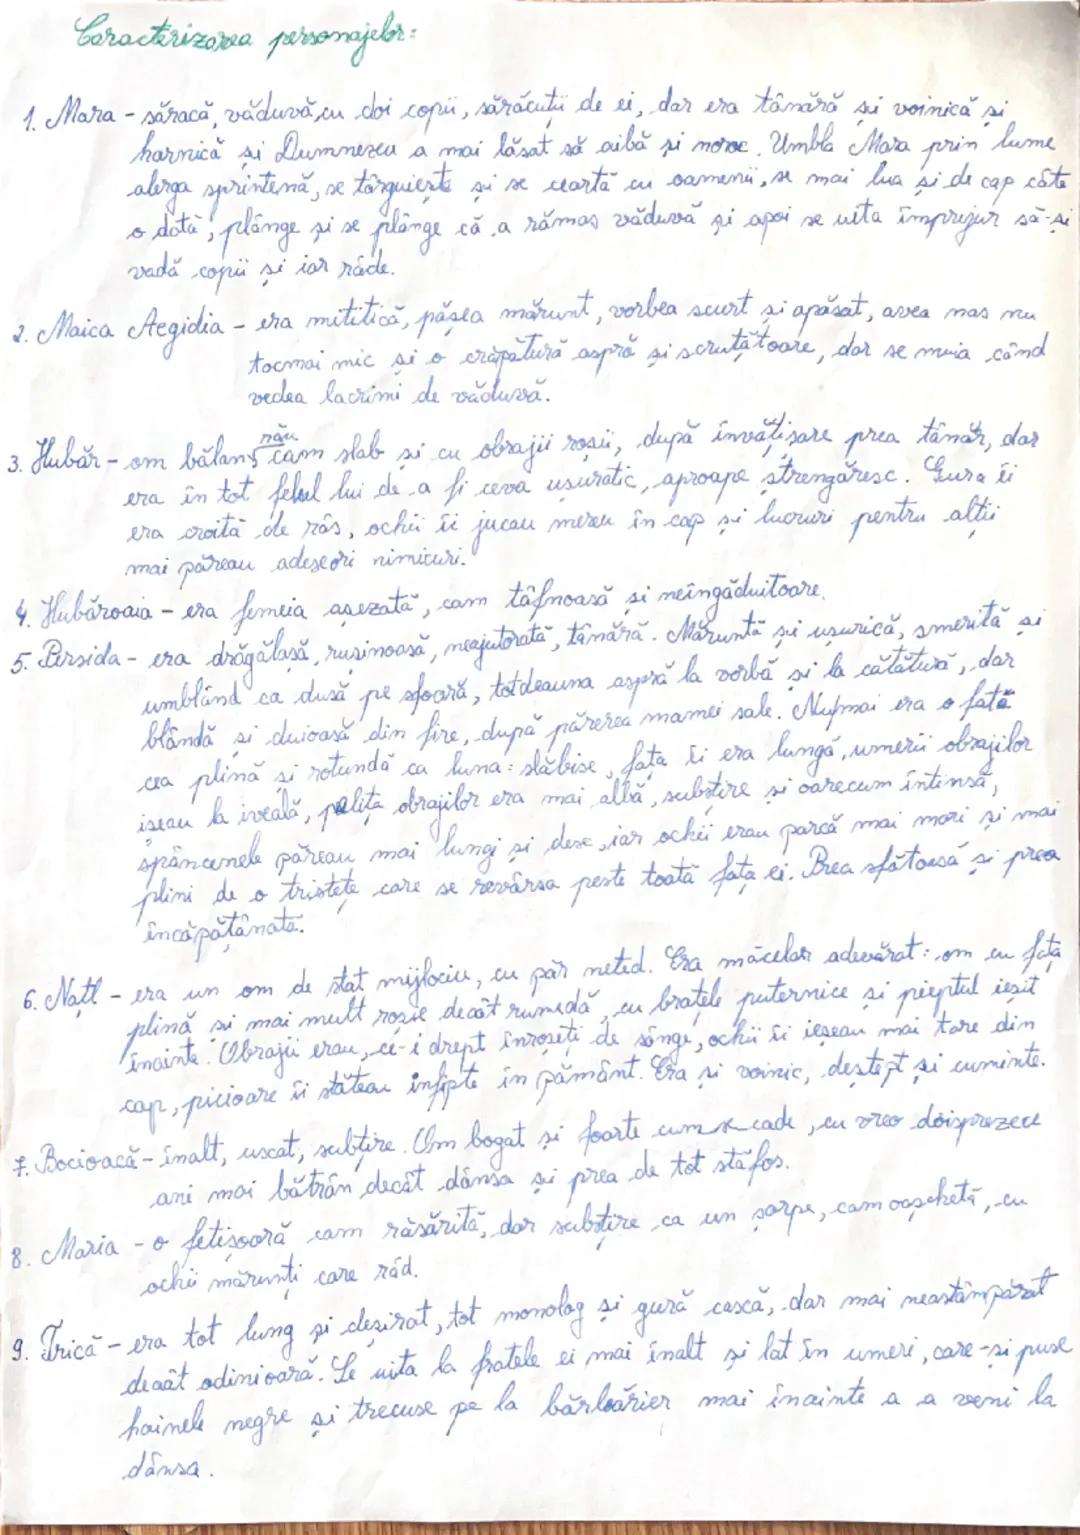 Caracterizarea personajelor:
1. Mara - săracă, văduvă, cu doi copii, sărăcuții de ei, dar era tânără și voinică și
harnică și Dumnezeu a mai lăsat să aibă și noroc. Umbla Mara prin lume
alerga sprintenă, se târguiește și se ceartă cu oamenii, se mai lua și de cap câte
o dată, plânge și se plânge că a rămas văduvă și apoi se uita împrejur să-și
vadă copii și iar râde.
2. Maica Aegidia - era mititică, pășea mărunt, vorbea scurt și apăsat, avea nas nu
tocmai mic și o crăpătură aspră și scrutătoare, dar se muia când
vedea lacrimi de văduvă.
3. Hubăr - om bălan, cam slab și cu obrajii roșii, după învățișare prea tânăr, dar
era în tot felul lui de a fi ceva ușuratic, aproape ștrengăresc. Gura îi
era croită de râs, ochii îi jucau mereu în cap și lucruri pentru alții
mai păreau adeseori nimicuri.
4. Hubăroaia - era femeia așezată, cam tâfnoasă și neîngăduitoare.
5. Persida - era drăgălașă, rușinoasă, neajutorată, tânără. Măruntă și ușurică, smerită și
umblând ca dusă pe sfoară, totdeauna aspră la vorbă și la cătătură, dar
blândă și duioasă din fire, după părerea mamei sale. Nu mai era o fată
cea plină și rotundă ca luna: slăbise, fața îi era lungă, umerii obrajilor
ișeau la iveală, pelița obrajilor era mai albă, subțire și oarecum întinsă,
sprâncenele păreau mai lungi și dese, iar ochii erau parcă mai mari și mai
plini de o tristețe care se revărsa peste toată fața ei. Prea sfătoasă și prea
încăpățânată.
6. Națl - era un om de stat mijlociu, cu păr neted. Era măcelar adevărat: om cu fața
plină și mai mult roșie decât rumenă, cu brațele puternice și pieptul ieșit
înainte. Obrajii erau, ce-i drept înroșiți de sânge, ochii îi ieșeau mai tare din
cap, picioare îi stăteau înfipte în pământ. Era și voinic, deștept și cuminte.
7. Bocioacă - înalt, uscat, subțire. Om bogat și foarte cum se cade, cu vreo doisprezece
ani mai bătrân decât dânsa și prea de tot stăfos.
8. Maria - o fetișoară cam răsărită, dar subțire ca un șarpe, cam oașchetă, cu
ochii mărunți care râd.
9. Trică - era tot lung și deșirat, tot monolog și gură cască, dar mai neastâmpărat
decât odinioară. Se uita la fratele ei mai înalt și lat în umeri, care-și puse
hainele negre și trecuse pe la bărbărier mai înainte a a veni la
dânsa.